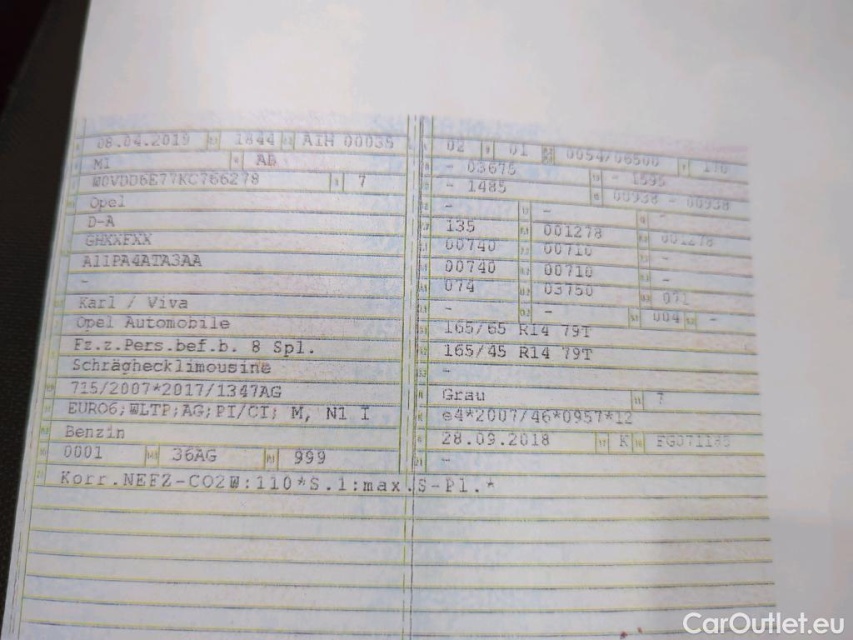 08.04.2019 1844 AIH 00035
M1 AB
W0VDD6E77KC766278 7
Opel
D-A
GHXXFXX
A11PA4ATA3AA
-
Karl / Viva
Opel Automobile
Fz.z.Pers.bef.b. 8 Spl.
Schräghecklimousine
715/2007*2017/1347AG
EURO6;WLTP;AG;PI/CI; M, N1 I
Benzin
0001 36AG 999
Korr.NEFZ-CO2W:110*S.1:max.S-Pl.*
02 01 0054/06500
- 03675 - 1595
- 1485 00938 - 00938
- - -
135 001278 001278
00740 00710 -
00740 00710 -
074 03750 072
- - 004 -
165/65 R14 79T
165/45 R14 79T
-
Grau 7
e4*2007/46*0957*12
28.09.2018 K
-
CarOutlet.eu